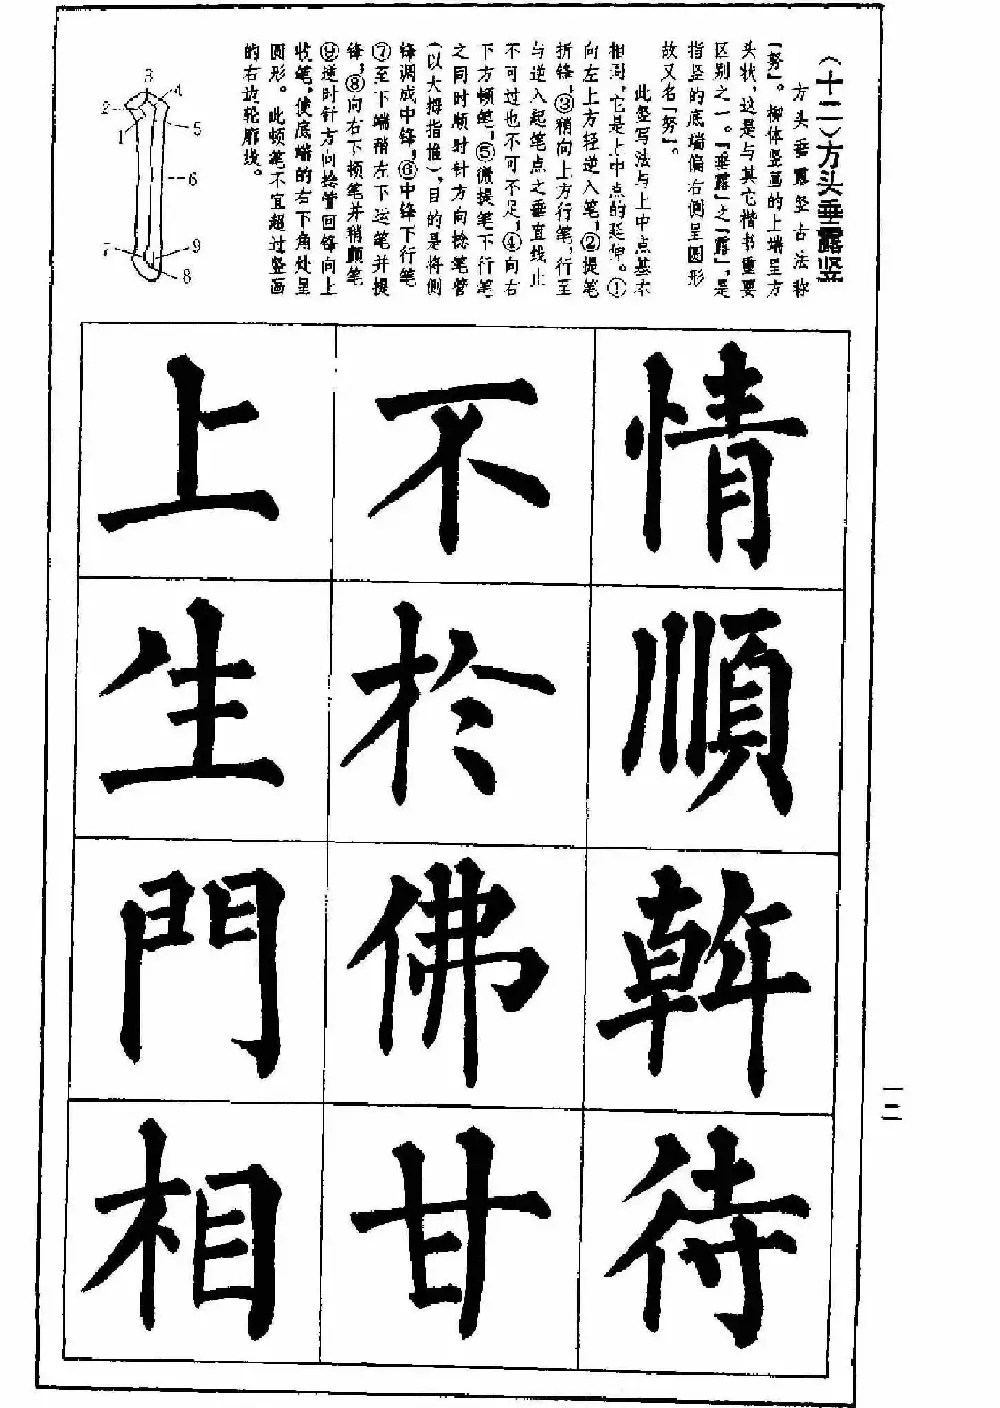 (十二)方头垂露竖
方头垂露竖古法称
「努」。柳体竖画的上端呈方
头状,这是与其它楷书重要
区别之一。「垂露」之「露」,是
指竖的底端偏右侧呈圆形
故又名「努」。
此竖写法与上中点基本
相同,它是上中点的延伸。①
向左上方轻逆入笔;②提笔
折锋;③稍向上方行笔,行至
与逆入起笔点之垂直线止
不可过也不可不足;④向右
下方顿笔;⑤微提笔下行笔
之同时顺时针方向捻笔管
(以大拇指推),目的是将侧
锋调成中锋;⑥中锋下行笔
⑦至下端稍左下运笔并提
锋;⑧向右下顿笔并稍颤笔
⑨逆时针方向捻管回锋向上
收笔,使底端的右下角处呈
圆形。此顿笔不宜超过竖画
的右边轮廓线。
1
2
3
4
5
6
7
8
9
情順幹待
不於佛甘
上生門相
一二